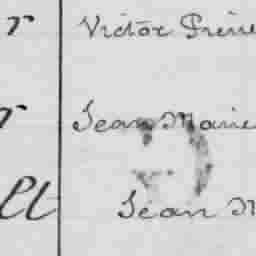 r Victor Pierre
r Jean Marie
lt Jean M